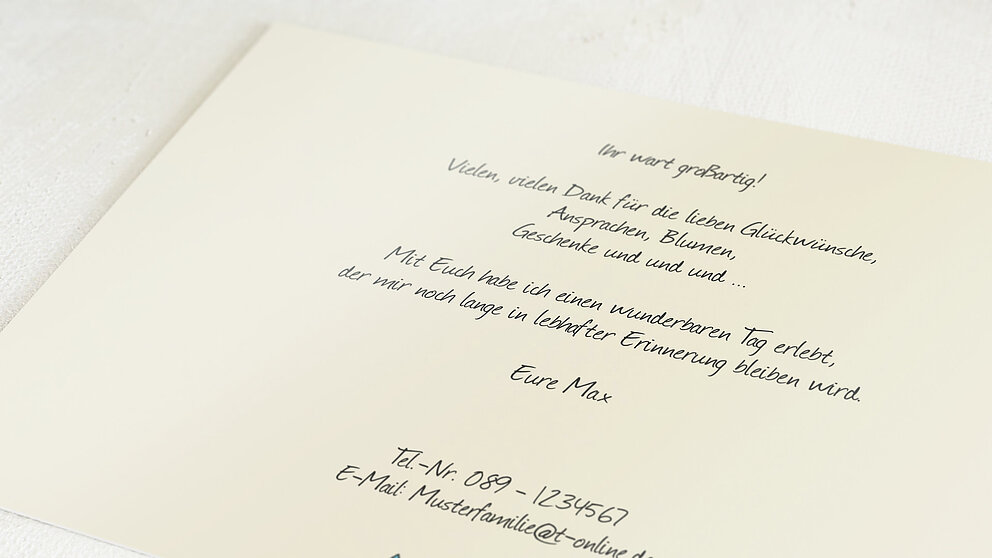 Ihr wart großartig!
Vielen, vielen Dank für die lieben Glückwünsche,
Ansprachen, Blumen,
Geschenke und und und ...
Mit Euch habe ich einen wunderbaren Tag erlebt,
der mir noch lange in lebhafter Erinnerung bleiben wird.
Eure Max
Tel.-Nr. 089 - 1234567
E-Mail: Musterfamilie@t-online.de